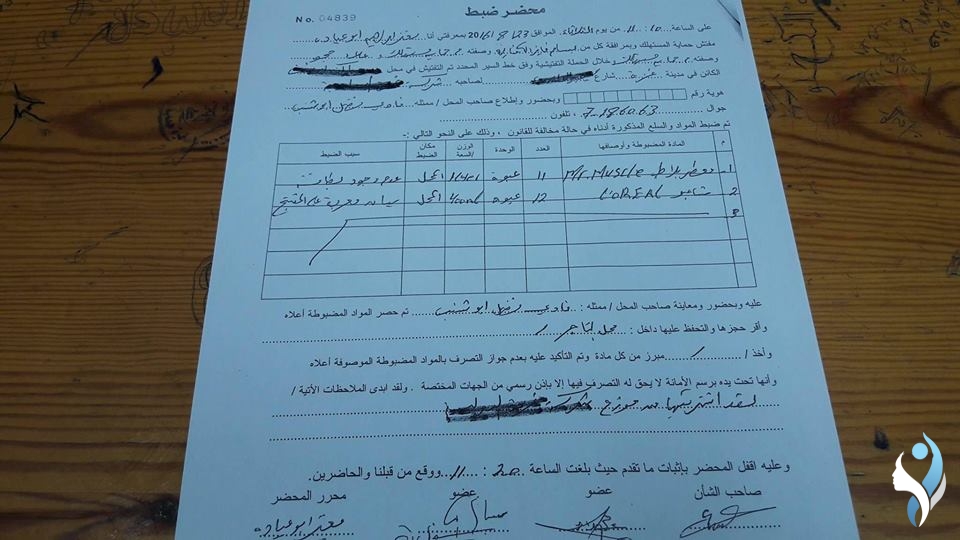 محضر ضبط
No. 04839
على الساعة ... ١١ من يوم الثلاثاء الموافق 23/ 8 /2016 بمعرفتي أنا
مفتش حماية المستهلك وبمرافقة كل من وصفته و
وصفته وخلال الحملة التفتيشية وفق خط السير المحدد تم التفتيش في محل
الكائن في مدينة غزة شارع لصاحبه شركة
هوية رقم وبحضور وإطلاع صاحب المحل / ممثله : فادي فضل ابو شنب
جوال ، تلفون
تم ضبط المواد والسلع المذكورة أدناه في حالة مخالفة للقانون ، وذلك على النحو التالي :-
م المادة المضبوطة وأوصافها العدد الوحدة الوزن /السعة مكان الضبط سبب الضبط
1- معطر بلاط Mr MUSCLE 11 عبوة المحل عدم وجود بطاقة
2 شامبو L'OREAL 12 عبوة المحل بيانات على المنتج
3
عليه وبحضور ومعاينة صاحب المحل / ممثله : فادي فضل ابو شنب تم حصر المواد المضبوطة أعلاه
وأقر حجزها والتحفظ عليها داخل : محل التاجر /
وأخذ / / مبرز من كل مادة وتم التأكيد عليه بعدم جواز التصرف بالمواد المضبوطة الموصوفة أعلاه
وأنها تحت يده برسم الأمانة لا يحق له التصرف فيها إلا بإذن رسمي من الجهات المختصة . ولقد ابدى الملاحظات الأتية /
لقد اشتريتها من موزع شركة
وعليه اقفل المحضر بإثبات ما تقدم حيث بلغت الساعة : ١١ ووقع من قبلنا والحاضرين.
صاحب الشأن عضو عضو محرر المحضر
معتز ابو عيادة